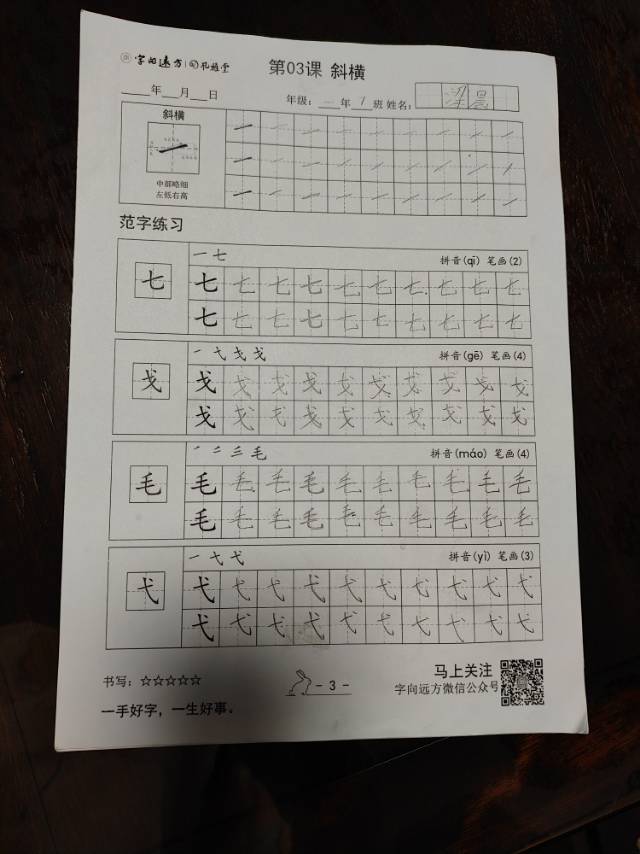 字向远方 第03课 斜横
年 月 日 年级: 一 年 1 班 姓名: 晨
斜横
中部略细
左低右高
范字练习
一 七 拼音(qī) 笔画(2)
七 七 七 七 七 七 七 七 七 七 七
七 七 七 七 七 七 七 七 七 七
一 弋 戋 戈 拼音(gē) 笔画(4)
戈 戈 戈 戈 戈 戈 戈 戈 戈 戈 戈
戈 戈 戈 戈 戈 戈 戈 戈 戈 戈
拼音(máo) 笔画(4)
毛 毛 毛 毛 毛 毛 毛 毛 毛 毛 毛
毛 毛 毛 毛 毛 毛 毛 毛 毛 毛
一 弋 弋 拼音(yì) 笔画(3)
弋 弋 弋 弋 弋 弋 弋 弋 弋 弋 弋
弋 弋 弋 弋 弋 弋 弋 弋 弋 弋
书写: ☆☆☆☆☆ - 3 - 马上关注
字向远方微信公众号
一手好字，一生好事。